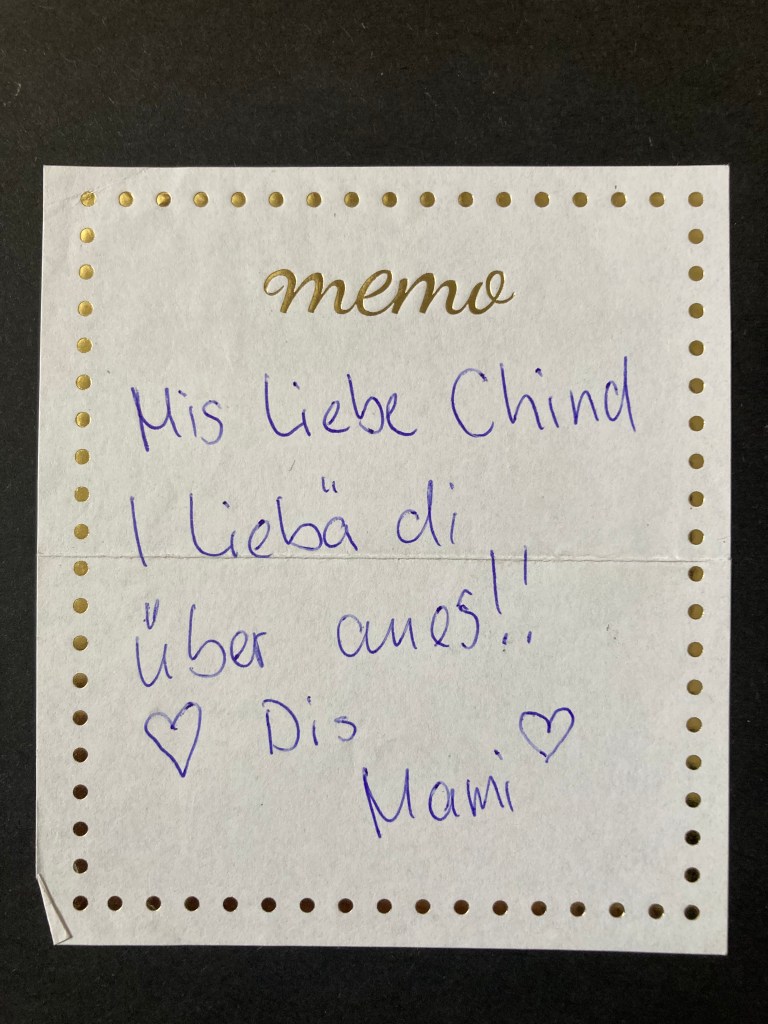 memo
Mis liebe Chind
I liebä di
über aues!!
♡ Dis ♡
Mami